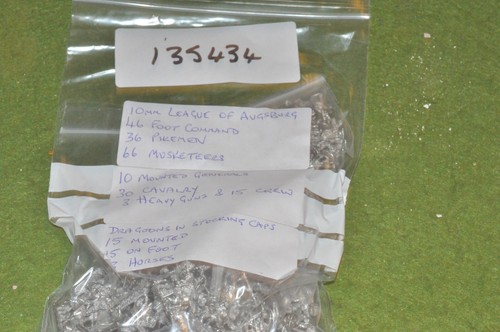 135434
10mm LEAGUE OF AUGSBURG
46 FOOT COMMAND
36 PIKEMEN
66 MUSKETEERS
10 MOUNTED GENERALS
30 CAVALRY
3 HEAVY GUNS & 15 CREW
DRAGOONS IN STOCKING CAPS
15 MOUNTED
15 ON FOOT
HORSES